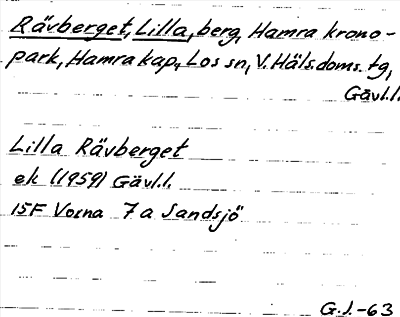 Rävberget, Lilla, berg, Hamra krono-
park, Hamra kap, Los sn, V. Häls. doms. tg,
Gävl.l.
Lilla Rävberget
ek (1959) Gävl.l.
15F Voxna 7a Sandsjö
G.J.-63